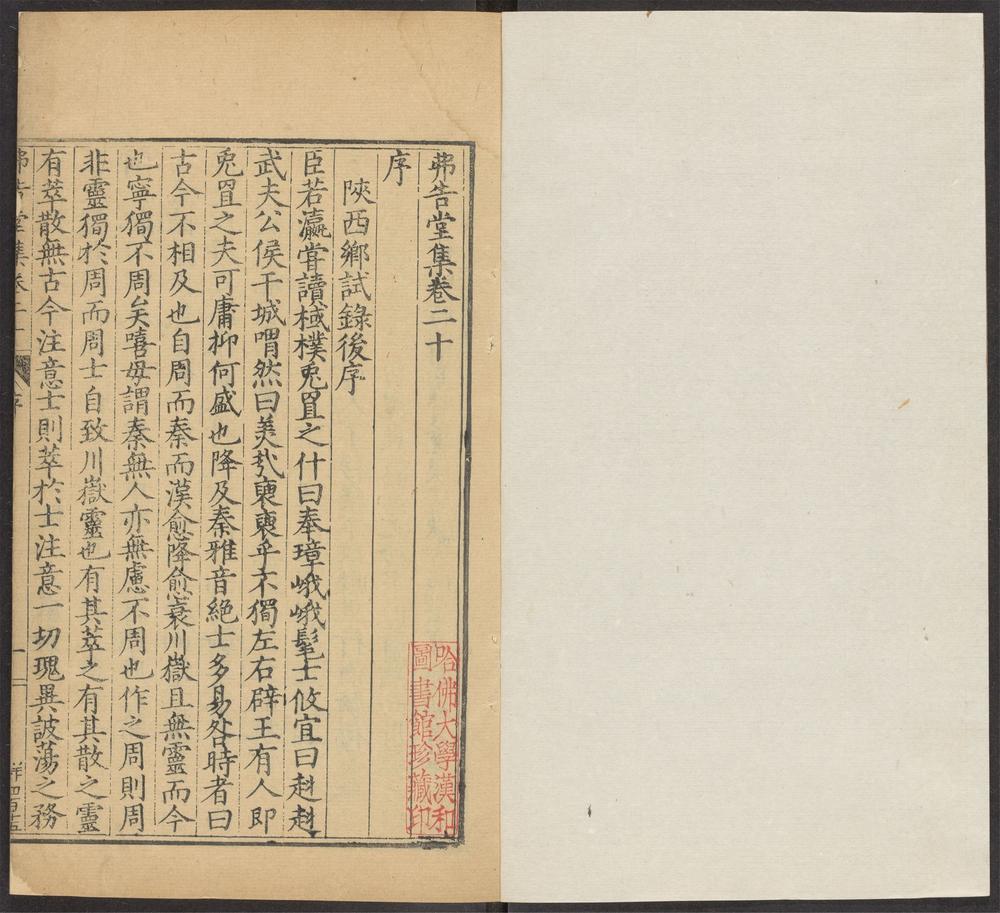 弗告堂集卷二十
序
陝西鄉試錄後序
臣若瀛甞讀棫樸兎罝之什曰奉璋峨峨髦士攸宜曰赳赳
武夫公侯干城喟然曰美哉褎褎乎不獨左右辟王有人即
兎罝之夫可庸抑何盛也降及秦雅音絕士多易咎時者曰
古今不相及也自周而秦而漢愈降愈衰川嶽且無靈而今
也寧獨不周矣嘻毋謂秦無人亦無慮不周也作之周則周
非靈獨於周而周士自致川嶽靈也有其萃之有其散之靈
有萃散無古今注意士則萃於士注意一切瑰異詖蕩之務
弗告堂集卷二十
序
一
哈佛大學漢和
圖書館珍藏印